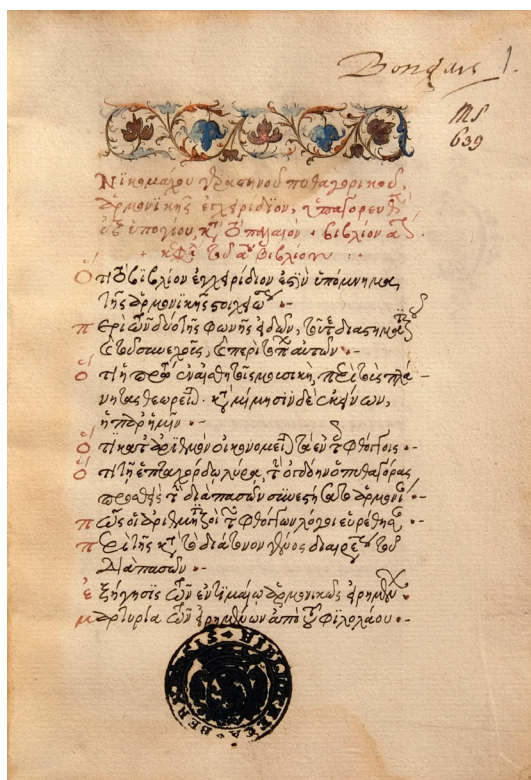 Bongars 1.
MS
639
Νικομάχου γερασηνοῦ πυθαγορικοῦ,
ἁρμονικῆς ἐγχειρίδιον, ὑπαγορευθὲν
ἐξ ὑπογύου, κατὰ τὸ παλαιόν. βιβλίον α´.
+ κεφάλαια τοῦ α´ βιβλίου :-
Ὅτι τὸ βιβλίον ἐγχειρίδιον ἐστὶν ὑπόμνημα
τῆς ἁρμονικῆς στοιχειώσεως ·-
περὶ τῶν δύο τῆς φωνῆς εἰδῶν, τοῦ τε διαστηματικοῦ
καὶ τοῦ συνεχοῦς, καὶ περὶ τόπων αὐτῶν ·-
Ὅτι ἡ πρώτη ἐν αἰσθητοῖς μουσικὴ, περὶ τοὺς πλα-
νήτας θεωρεῖται. κατὰ μίμησιν δὲ ἐκείνων,
ἡ παρ' ἡμῖν ·-
Ὅτι κατ' ἀριθμὸν οἰκονομεῖται τὰ ἐν τοῖς φθόγγοις ·-
Ὅτι τῇ ἑπταχόρδῳ λύρᾳ, τὴν ὀγδόην ὁ πυθαγόρας
προσθεὶς τὴν διαπασῶν συνεστήσατο ἁρμονίαν ·-
πῶς οἱ ἀριθμητικοὶ τῶν φθόγγων λόγοι εὑρέθησαν ·-
περὶ τῆς κατὰ τὸ διάτονον γένος διαιρέσεως τοῦ
διαπασῶν ·-
ἐξήγησις τῶν ἐν τιμαίῳ ἁρμονικῶς εἰρημένων
μαρτυρία τῶν εἰρημένων ἀπὸ τοῦ φιλολάου ·-
BIBLIOTHECA BERNENSIS